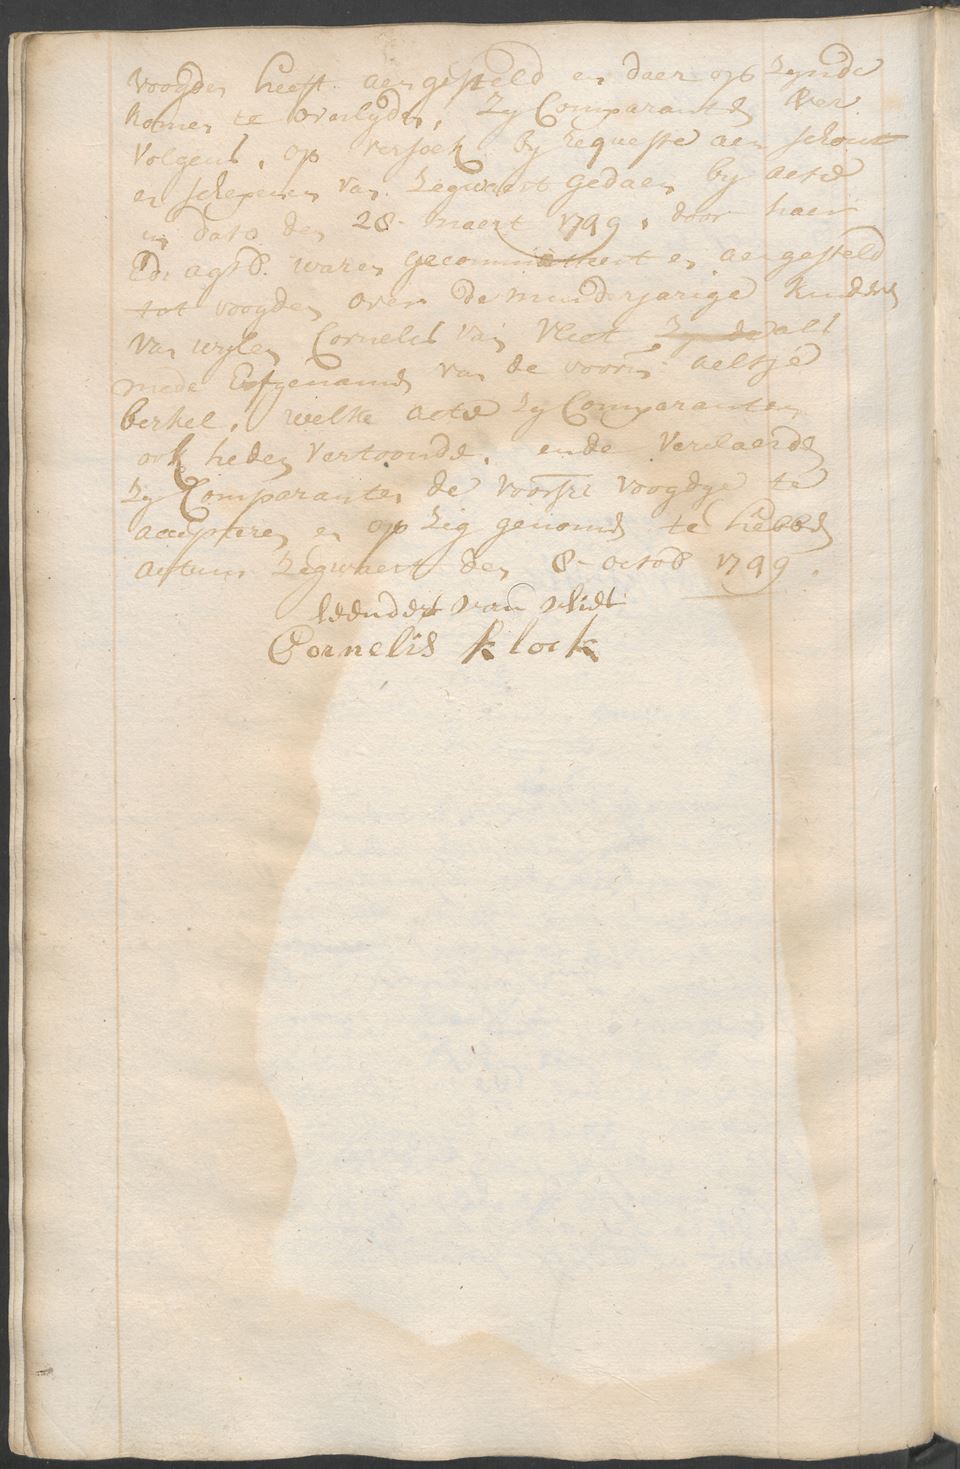 voogden heeft aengesteld en daer op zynde
komen te overlyden, Zy Comparanten ver
volgens, op versoek by requeste aen schout
en schepenen van Zegwaert gedaen by acte
in dato den 28 maert 1799, door haer
Ed: agtb. waren gecommitteert en aengesteld
tot voogden over de minderjarige kinderen
van wylen Cornelis van Vliet zynde als
mede Erfgenamen van de voorn aeltje
berkel, welke acte Zy Comparanten
ook heden vertoonde, ende verclaerde
Zy Comparanten de voorsz voogdye te
accepteren en op Zig genomen te hebben
actum Zegwaert den 8 octob 1799.
leendert van vliet
Cornelis klock